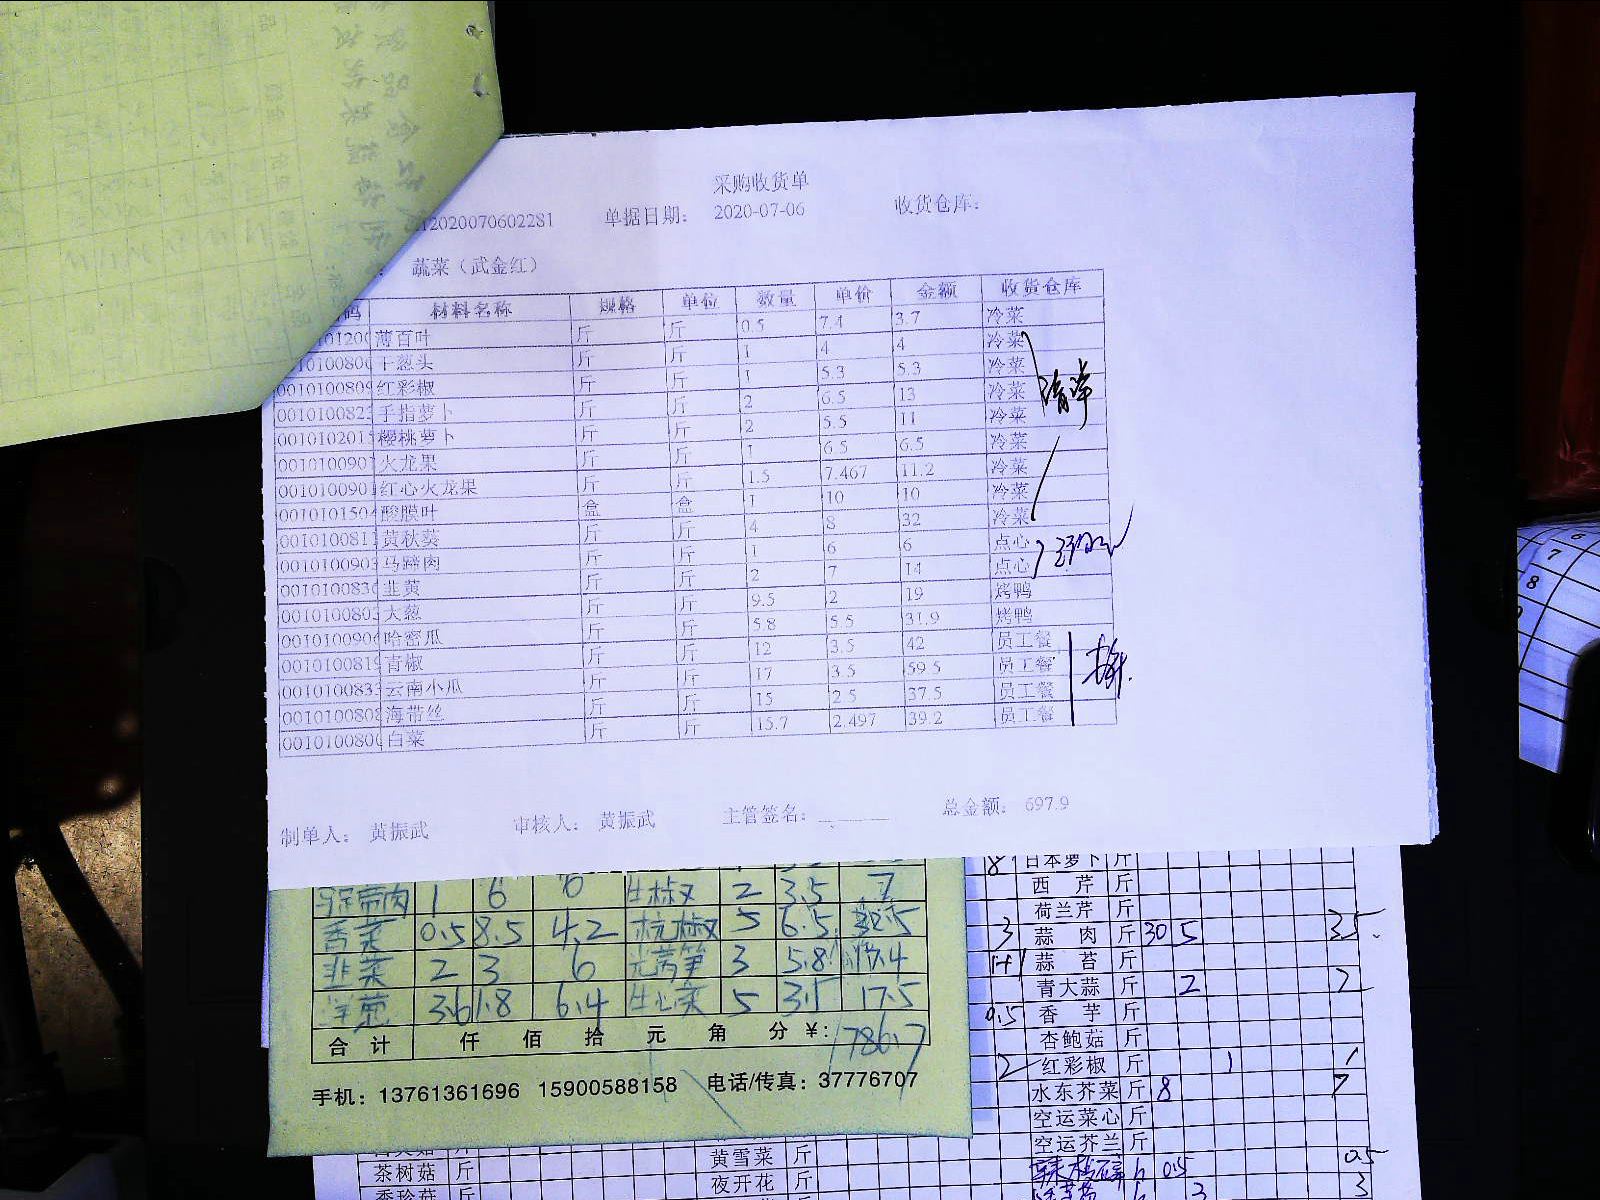 采购收货单
12020070602281 单据日期： 2020-07-06 收货仓库：
蔬菜（武金红）
码 材料名称 规格 单位 数量 单价 金额 收货仓库
0101200 薄百叶 斤 斤 0.5 7.4 3.7 冷菜
10100806 干葱头 斤 斤 1 4 4 冷菜
0010100809 红彩椒 斤 斤 1 5.3 5.3 冷菜
001010082 手指萝卜 斤 斤 2 6.5 13 冷菜
001010201 樱桃萝卜 斤 斤 2 5.5 11 冷菜
001010090 火龙果 斤 斤 1 6.5 6.5 冷菜
001010090 红心火龙果 斤 斤 1.5 7.467 11.2 冷菜
001010150 酸膜叶 盒 盒 1 10 10 冷菜
001010081 黄秋葵 斤 斤 4 8 32 冷菜
001010090 马蹄肉 斤 斤 1 6 6 点心
001010083 韭黄 斤 斤 2 7 14 点心
001010080 大葱 斤 斤 9.5 2 19 烤鸭
001010090 哈密瓜 斤 斤 5.8 5.5 31.9 烤鸭
001010081 青椒 斤 斤 12 3.5 42 员工餐
001010083 云南小瓜 斤 斤 17 3.5 59.5 员工餐
001010080 海带丝 斤 斤 15 2.5 37.5 员工餐
001010080 白菜 斤 斤 15.7 2.497 39.2 员工餐
制单人： 黄振武 审核人： 黄振武 主管签名： 总金额： 697.9
1 6 6 生椒 2 3.5 7
香菜 0.5 8.5 4.2 杭椒 5 6.5 32.5
韭菜 2 3 6 光莴笋 3 5.8 17.4
洋葱 3.6 1.8 6.4 生心菜 5 3.5 17.5
合计 仟 佰 拾 元 角 分 ￥： 1786.7
手机：13761361696 15900588158 电话/传真：37776707
8 日本萝卜 斤
西芹 斤
荷兰芹 斤
3 蒜肉 斤 30 5 35
蒜苔 斤
青大蒜 斤 2 2
0.5 香芋 斤
杏鲍菇 斤
2 红彩椒 斤 1 1
水东芥菜 斤 8 7
空运菜心 斤
空运芥兰 斤
茶树菇 斤 黄雪菜 斤 0.5 0.5
秀珍菇 斤 夜开花 斤 3 3